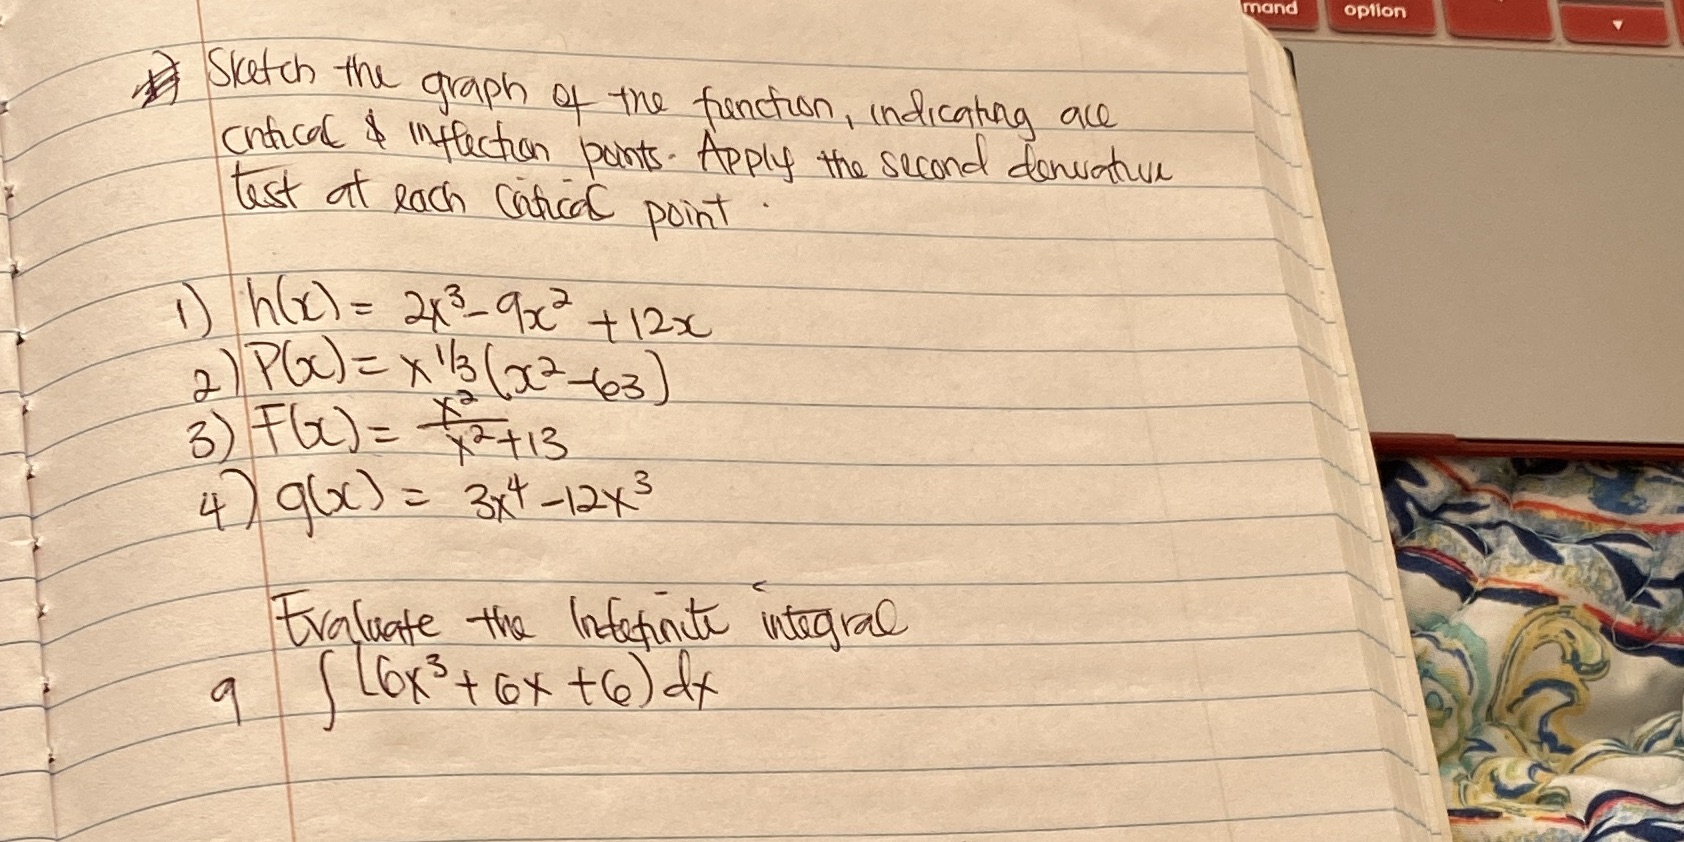 mand option
Sketch the graph of the function, indicating all
critical & inflection points. Apply the second derivative
test at each critical point.
1) h(x) = 2x³ - 9x² + 12x
2) P(x) = x^1/3 (x² - 63)
3) F(x) = x²/x² + 13
4) g(x) = 3x⁴ - 12x³
Evaluate the Indefinite integral
9 ∫ (6x³ + 6x + 6) dx